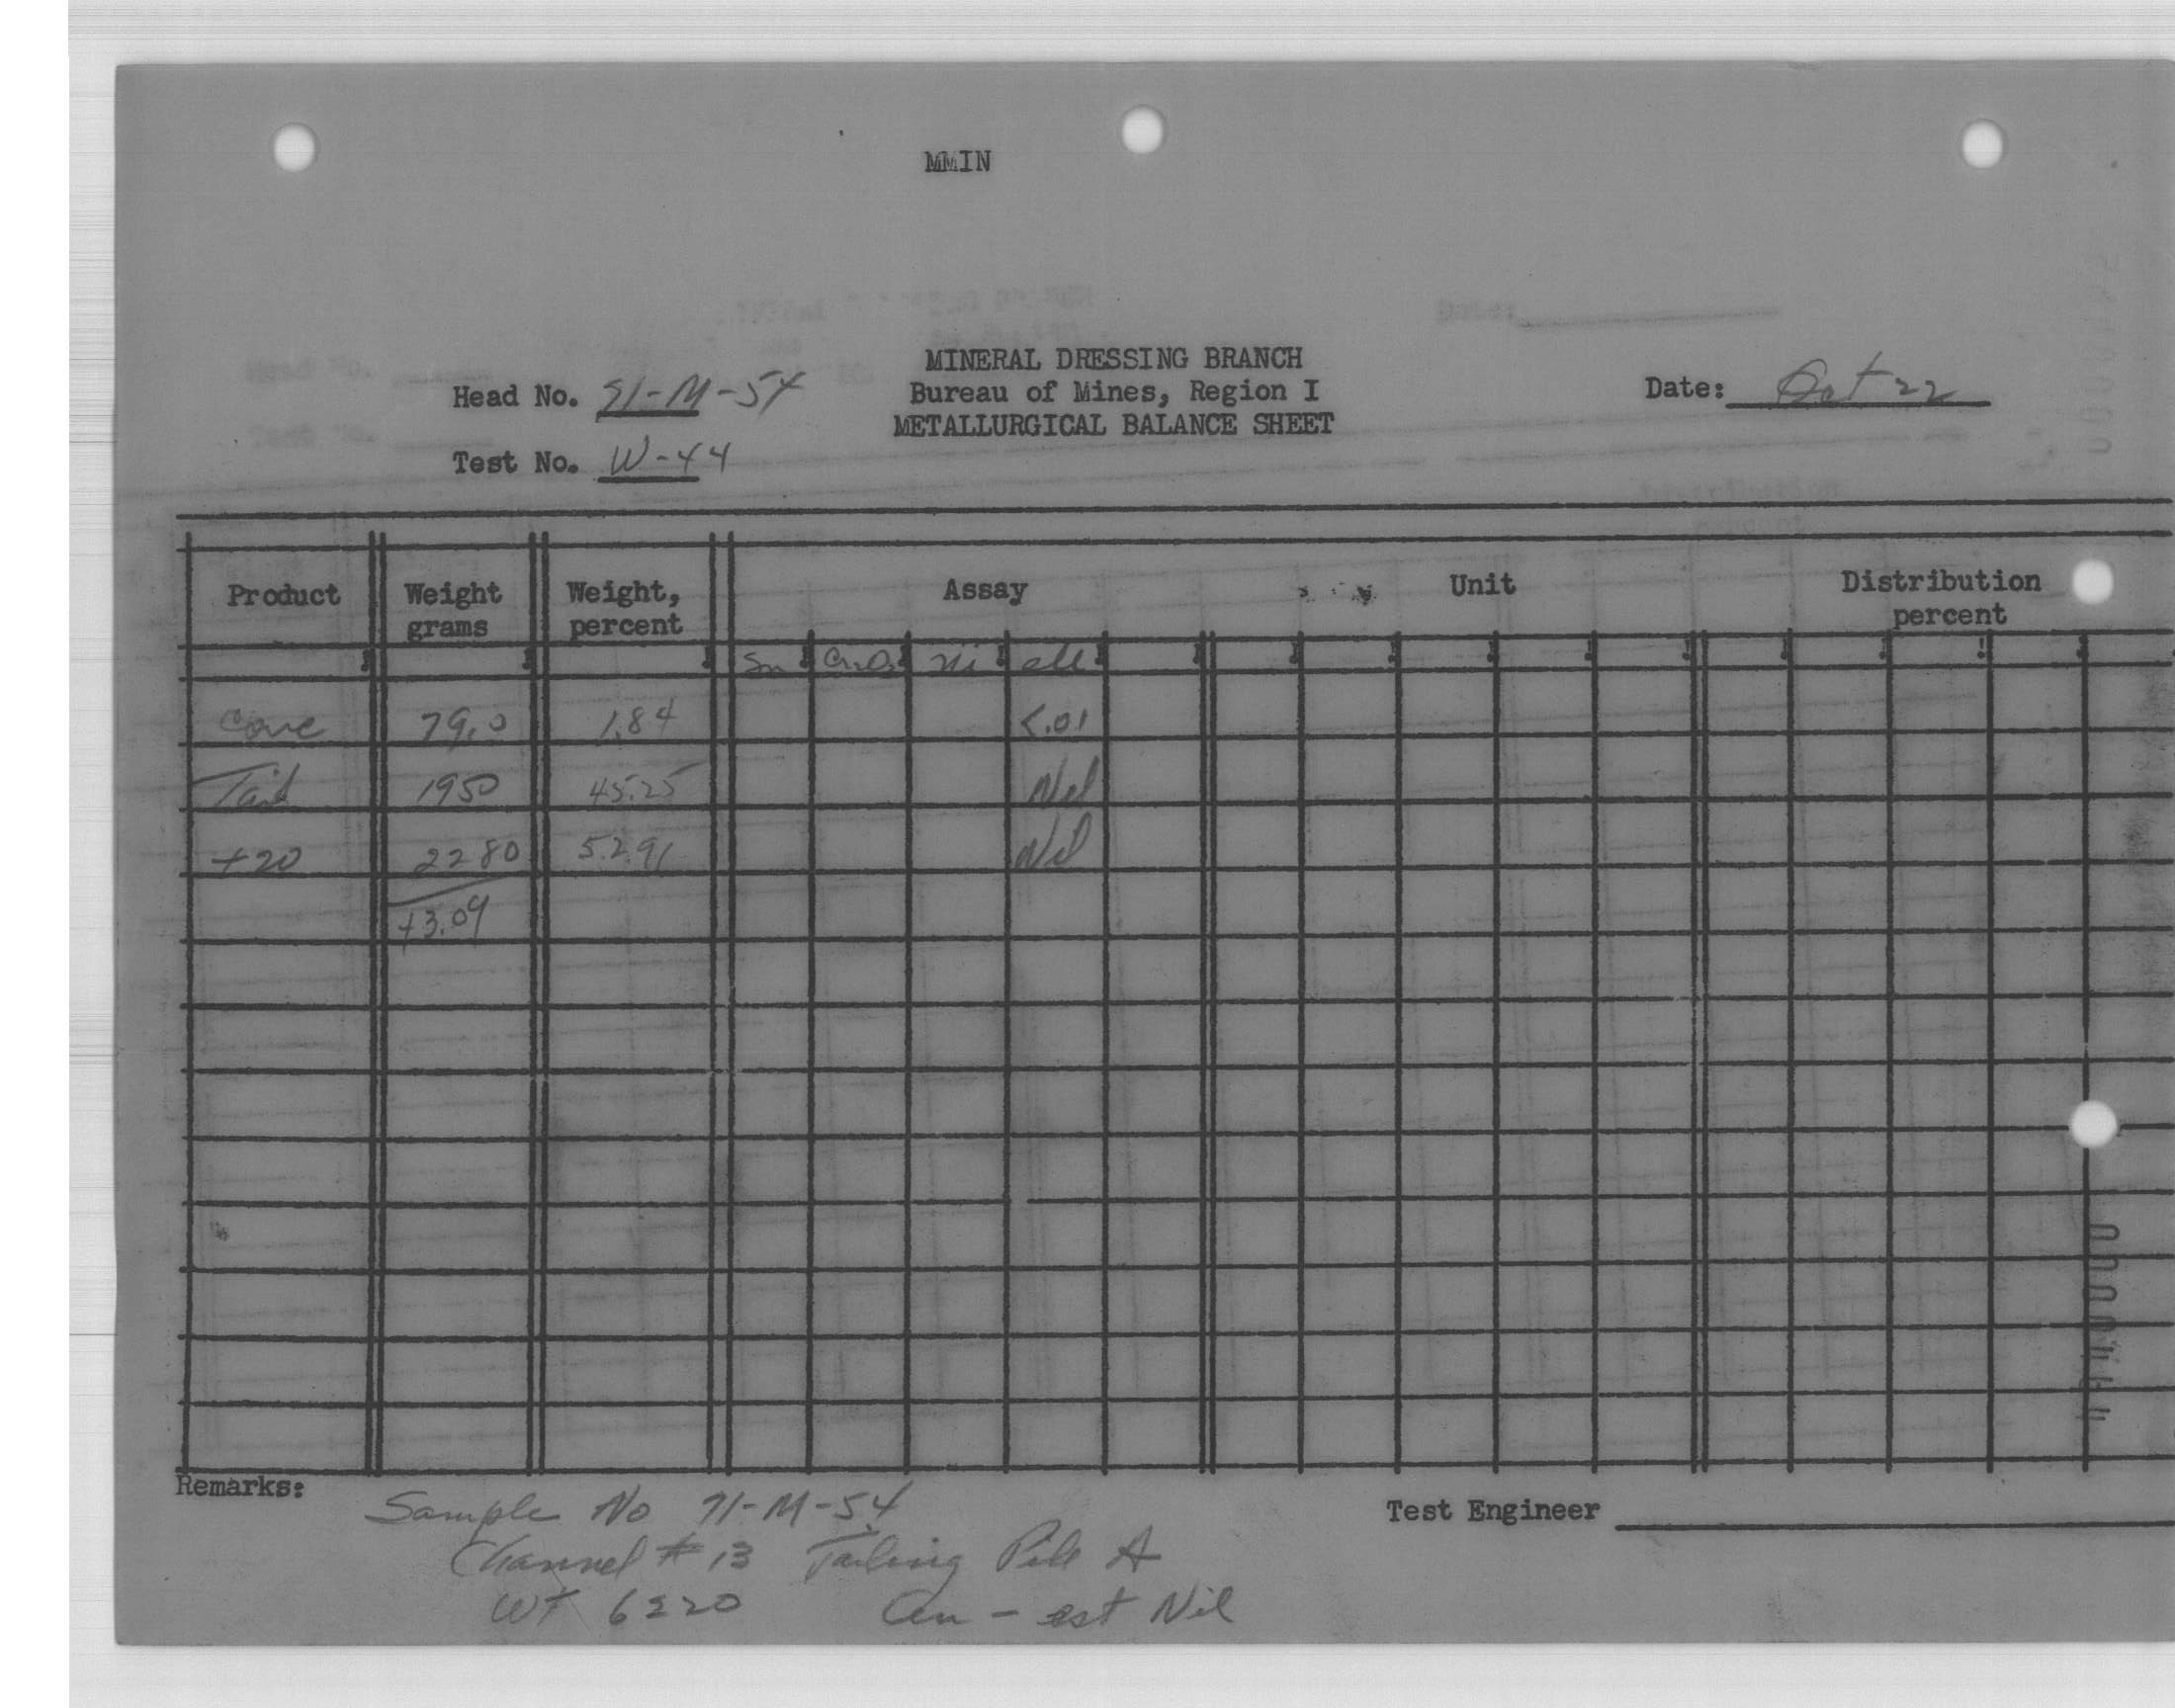 MMIN
MINERAL DRESSING BRANCH
Head No. 91-M-54 Bureau of Mines, Region I Date: Oct 22
METALLURGICAL BALANCE SHEET
Test No. W-44
Product Weight grams Weight, percent Assay Unit Distribution percent
Sn Ni
Conc 79.0 1.84 <.01
Tail 1950 45.25 Nil
+20 2280 52.91 Nil
43.09
Remarks:
Sample No 91-M-54
Test Engineer
Channel # 13 Tailing Pile A
WT 6220 - est Nil